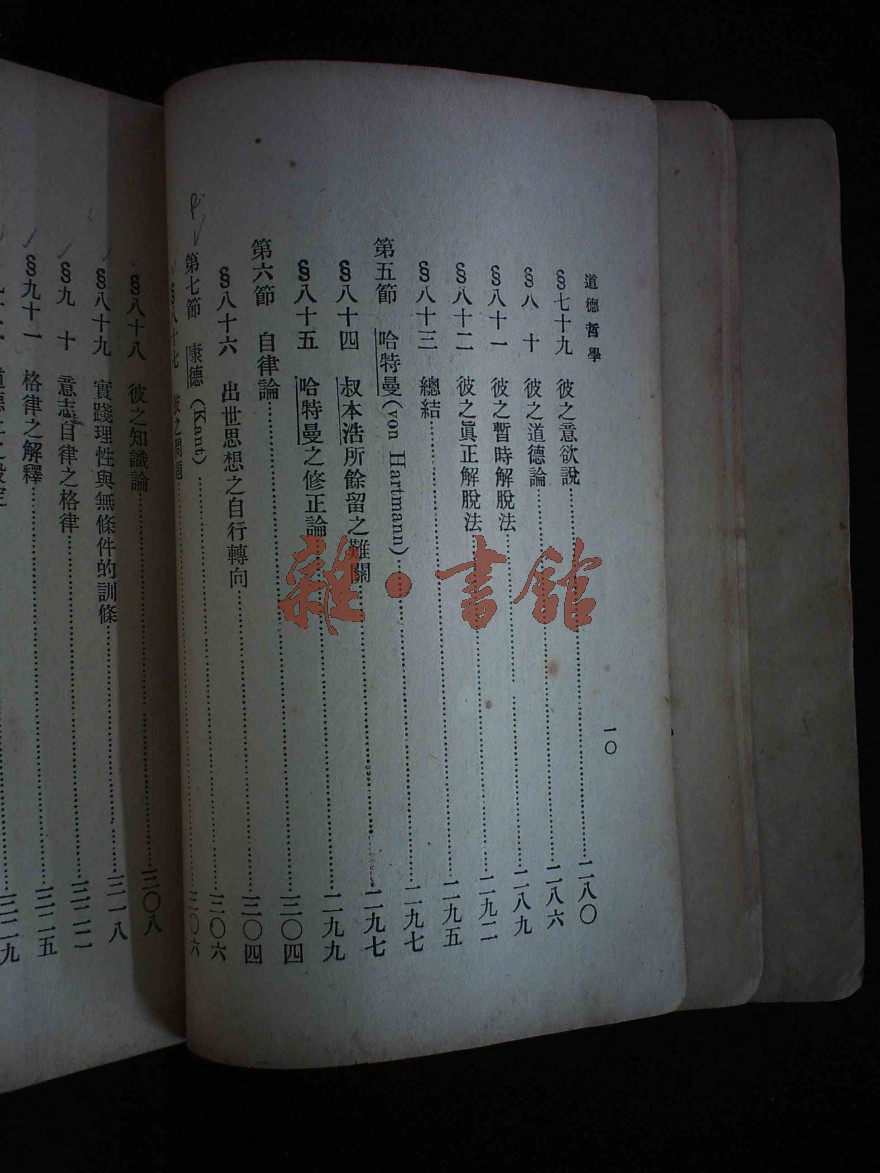 道德哲學
一〇
§七十九 彼之意欲說……二八〇
§八 十 彼之道德論……二八六
§八十一 彼之暫時解脫法……二八九
§八十二 彼之眞正解脫法……二九二
§八十三 總結……二九五
第五節 哈特曼(von Hartmann)……二九七
§八十四 叔本浩所餘留之難關……二九七
§八十五 哈特曼之修正論……二九九
第六節 自律論……三〇四
§八十六 出世思想之自行轉向……三〇四
第七節 康德(Kant)……三〇六
§八十七 彼之問題……三〇六
§八十八 彼之知識論……三〇八
§八十九 實踐理性與無條件的訓條……三一八
§九 十 意志自律之格律……三二二
§九十一 格律之解釋……三二五
三二九
雜·書館